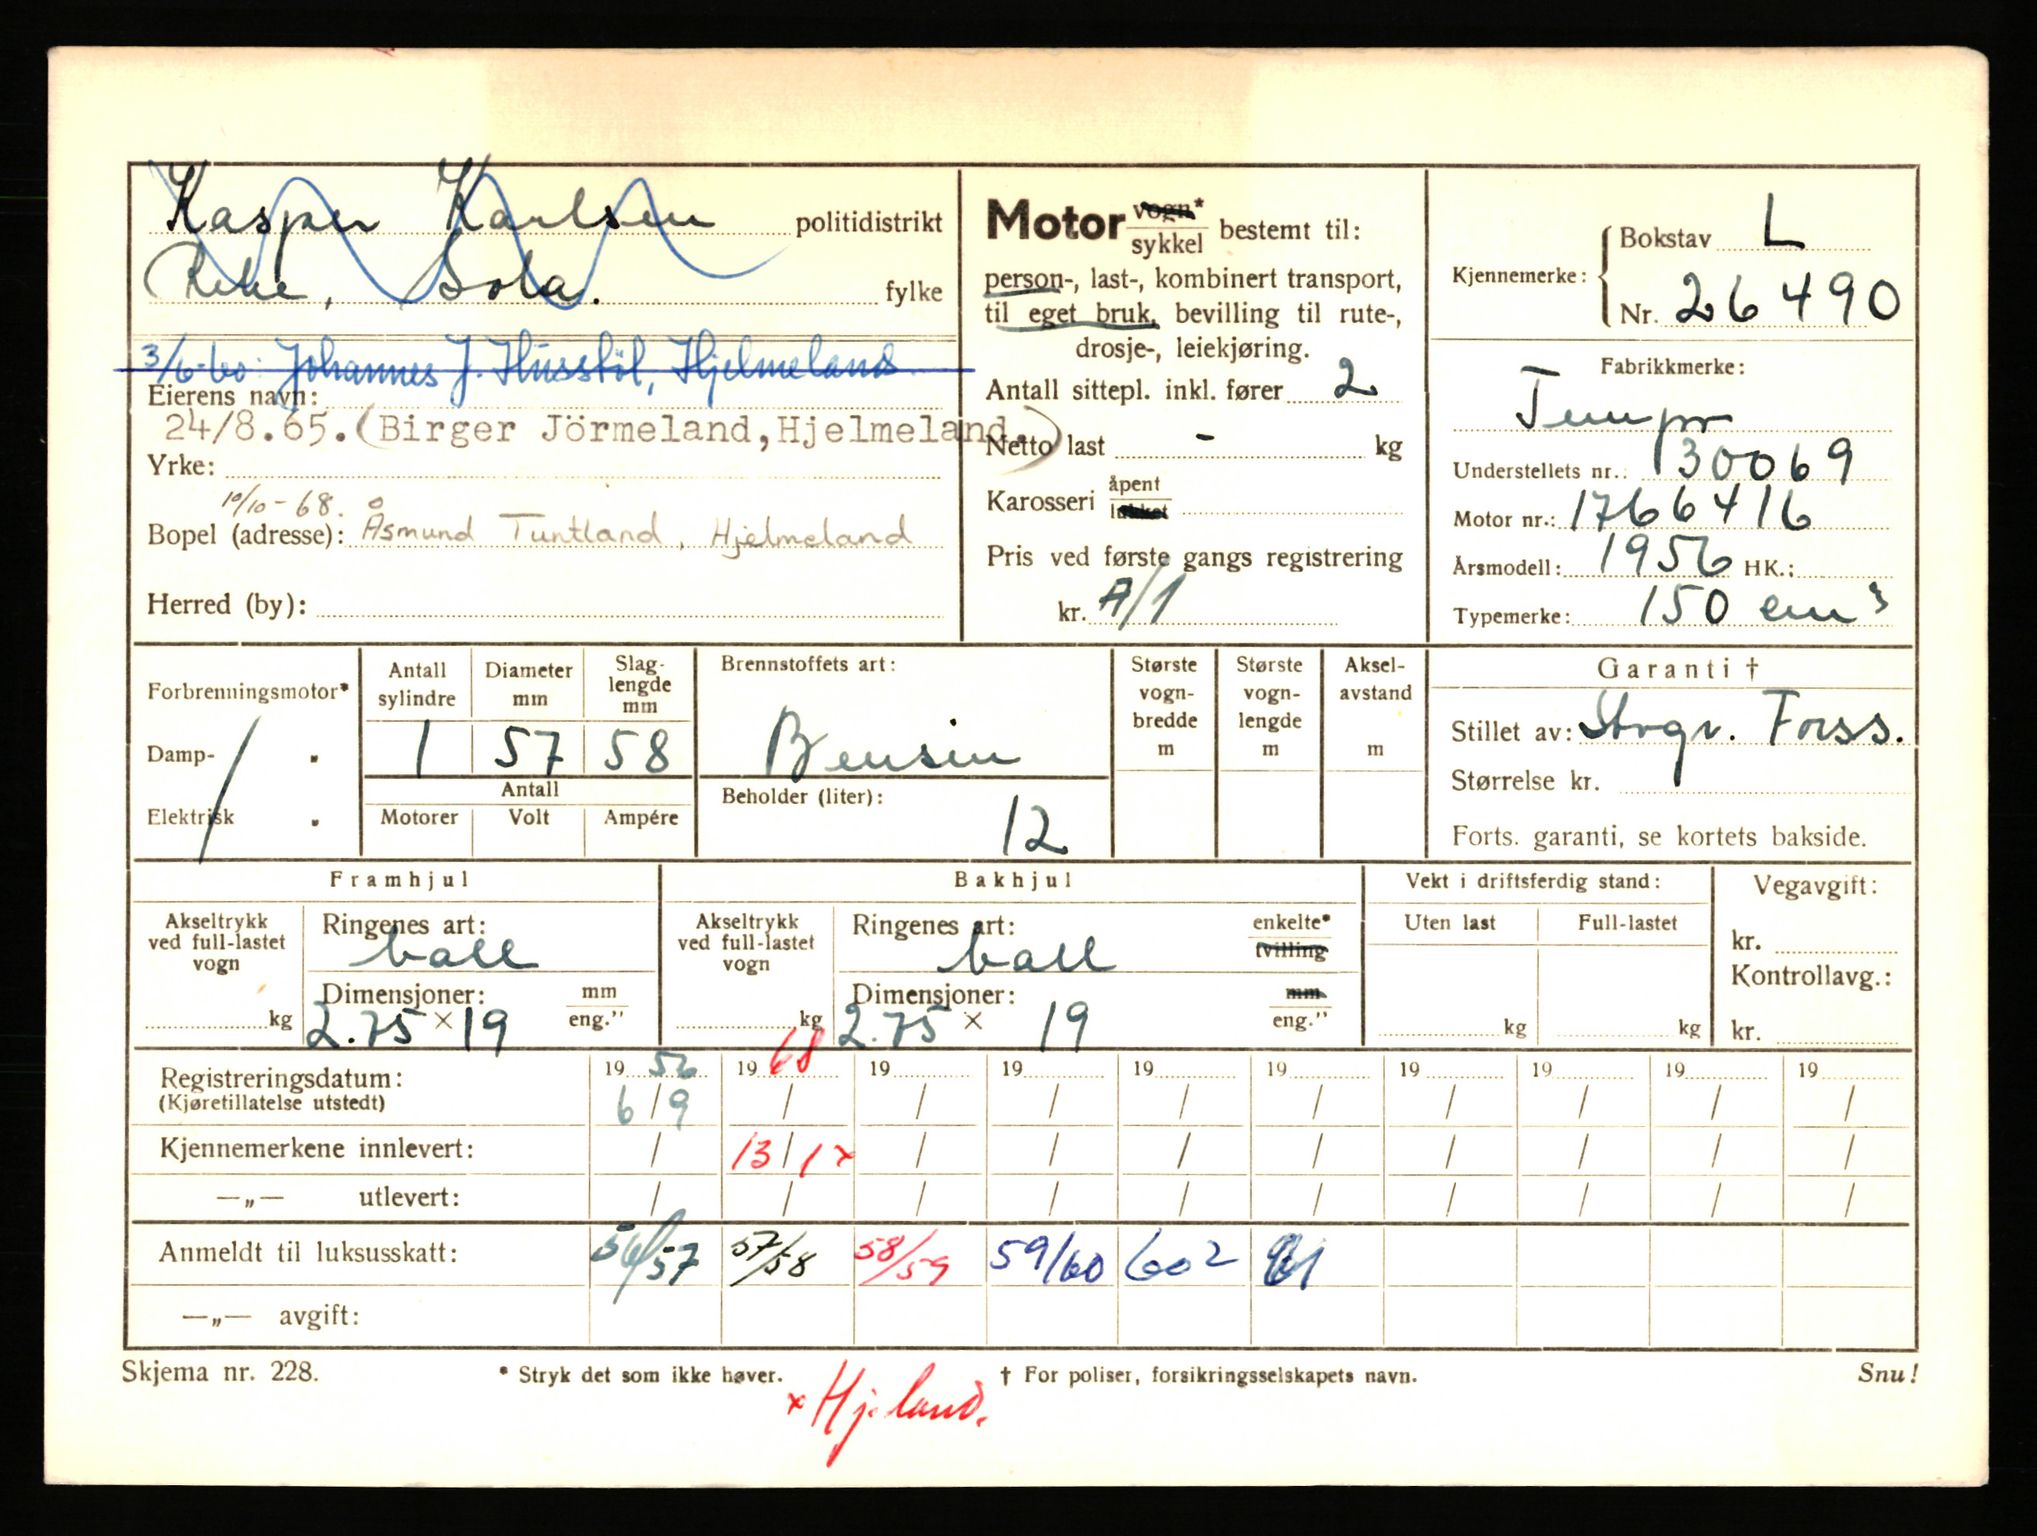 Kasper Karlsen politidistrikt
Reke, Sola. fylke
3/6-60: Johannes J. Husstöl, Hjelmeland.
Eierens navn:
24/8.65. (Birger Jörmeland, Hjelmeland.)
Yrke:
10/10-68.
Bopel (adresse): Åsmund Tuntland, Hjelmeland
Herred (by):
Motor vogn* / sykkel bestemt til:
person-, last-, kombinert transport,
til eget bruk, bevilling til rute-,
drosje-, leiekjøring.
Antall sittepl. inkl. fører 2
Netto last - kg
Karosseri åpent / lukket
Pris ved første gangs registrering
kr. A/1
Kjennemerke: Bokstav L
Nr. 26490
Fabrikkmerke:
Tempo
Understellets nr.: 130069
Motor nr.: 1766416
Årsmodell: 1956 HK.:
Typemerke: 150 cm³
Forbrenningsmotor*
Damp- "
Elektrisk "
Antall sylindre Diameter mm Slaglengde mm
1 57 58
Antall
Motorer Volt Ampére
Brennstoffets art:
Bensin
Beholder (liter):
12
Største vognbredde m
Største vognlengde m
Akselavstand m
Garanti †
Stillet av: Storgr. Forss.
Størrelse kr.
Forts. garanti, se kortets bakside.
Framhjul
Akseltrykk ved full-lastet vogn kg
Ringenes art:
ball
Dimensjoner: mm / eng."
2.75 × 19
Bakhjul
Akseltrykk ved full-lastet vogn kg
Ringenes art: enkelte* / tvilling
ball
Dimensjoner: mm / eng."
2.75 × 19
Vekt i driftsferdig stand:
Uten last Full-lastet
kg kg
Vegavgift:
kr.
Kontrollavg.:
kr.
Registreringsdatum: 19 56 19 68 19 19 19 19 19 19 19 19
(Kjøretillatelse utstedt) 6/9 / / / / / / / / /
Kjennemerkene innlevert: / 13/1 x / / / / / / / /
—„— utlevert: / / / / / / / / / /
Anmeldt til luksusskatt: 56/57 57/58 58/59 59/60 60 2 61
—„— avgift:
Skjema nr. 228. * Stryk det som ikke høver. † For poliser, forsikringsselskapets navn. Snu!
x Hj.land.